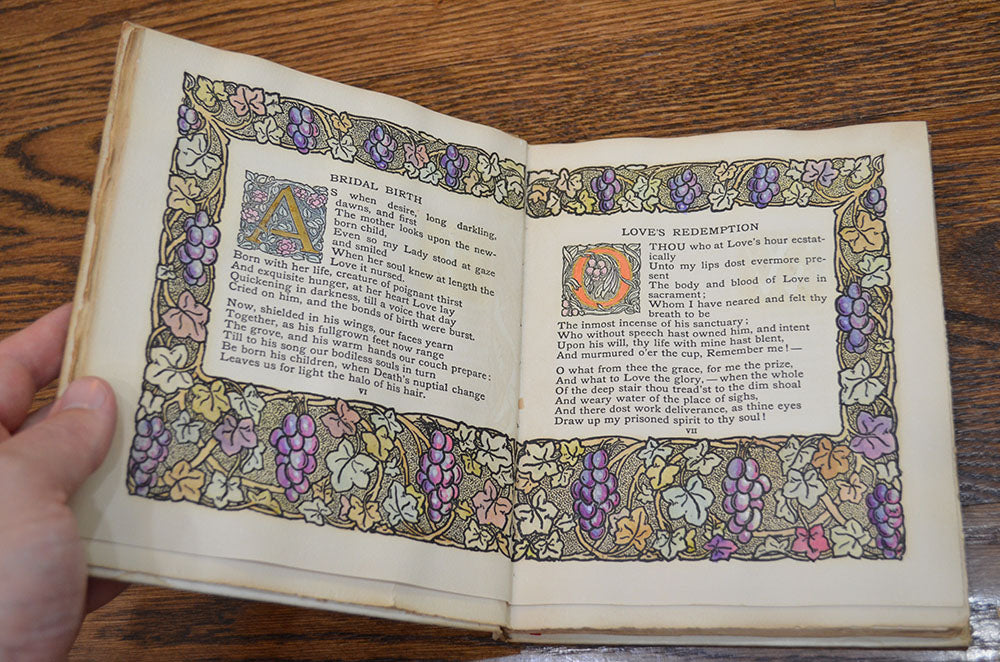 BRIDAL BIRTH
AS when desire, long darkling,
dawns, and first
The mother looks upon the new-
born child,
Even so my Lady stood at gaze
and smiled
When her soul knew at length the
Love it nursed.
Born with her life, creature of poignant thirst
And exquisite hunger, at her heart Love lay
Quickening in darkness, till a voice that day
Cried on him, and the bonds of birth were burst.
Now, shielded in his wings, our faces yearn
Together, as his fullgrown feet now range
The grove, and his warm hands our couch prepare:
Till to his song our bodiless souls in turn
Be born his children, when Death's nuptial change
Leaves us for light the halo of his hair.
VI
LOVE'S REDEMPTION
O THOU who at Love's hour ecstat-
ically
Unto my lips dost evermore pre-
sent
The body and blood of Love in
sacrament;
Whom I have neared and felt thy
breath to be
The inmost incense of his sanctuary;
Who without speech hast owned him, and intent
Upon his will, thy life with mine hast blent,
And murmured o'er the cup, Remember me!—
O what from thee the grace, for me the prize,
And what to Love the glory,—when the whole
Of the deep stair thou tread'st to the dim shoal
And weary water of the place of sighs,
And there dost work deliverance, as thine eyes
Draw up my prisoned spirit to thy soul!
VII